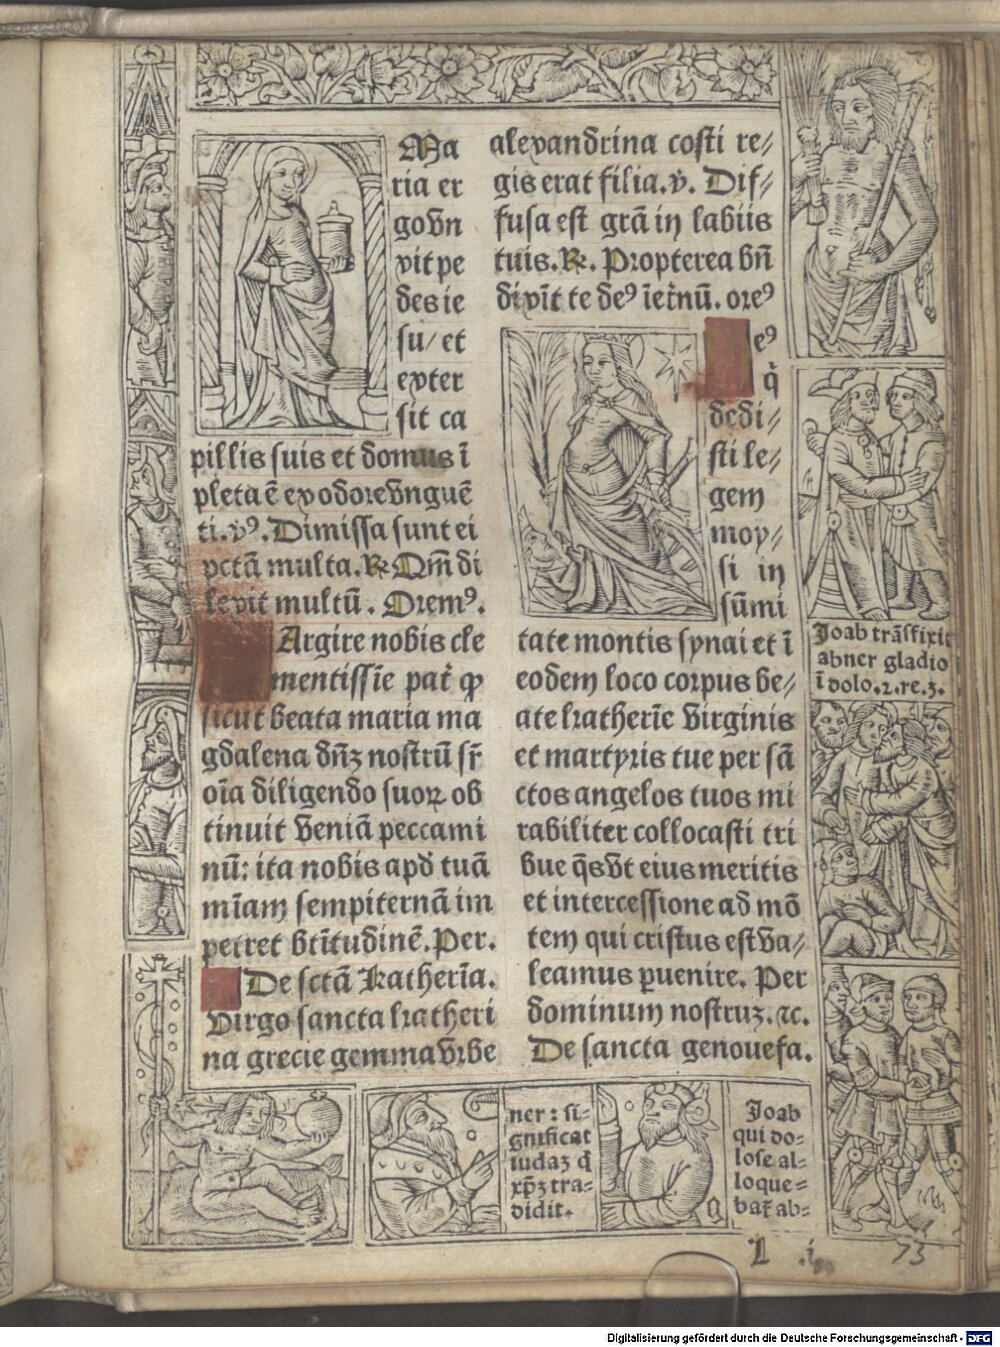 Ma
ria er
go vn
xit pe
des ie
su/ et
exter
sit ca
pillis suis et domus ī
pleta ē ex odore vnguē
ti. v̉ꝰ. Dimissa sunt ei
pctā multa. ℞ Qm̄ di
lexit multū. Oremꝰ.
Argire nobis cle
mentissīe pat̉ ꝙ
sicut beata maria ma
gdalena dn̄ꝫ nostrū sr̄
oīa diligendo suoꝝ ob
tinuit veniā peccami
nū: ita nobis apd̉ tuā
mīam sempiternā im
petret btītudinē. Per.
De sctā Katherīa.
Virgo sancta katheri
na grecie gemma vrbe
alexandrina costi re⸗
gis erat filia. v̉. Dif⸗
fusa est grā in labiis
tuis. ℞. Propterea bn̄
dixīt te deꝰ īet̉nū. oreꝰ
eꝰ
q̉
dedi⸗
sti le⸗
gem
moy⸗
si in
sūmi
tate montis synai et ī
eodem loco corpus be⸗
ate katherīe virginis
et martyris tue per sā
ctos angelos tuos mi
rabiliter collocasti tri
bue q̄s vt eius meritis
et intercessione ad mō
tem qui cristus est va⸗
leamus ꝑuenire. Per
dominum nostruꝫ. ⁊c.
De sancta genouefa.
Joab trāsfixit
abner gladio
ī dolo. 2. re. 3.
Joab
qui do⸗
lose al⸗
loque⸗
bat̉ ab⸗
ner: si⸗
gnificat
iudaꝫ q̉
xp̄ꝫ tra⸗
didit.
l .i.
73
Digitalisierung gefördert durch die Deutsche Forschungsgemeinschaft - DFG